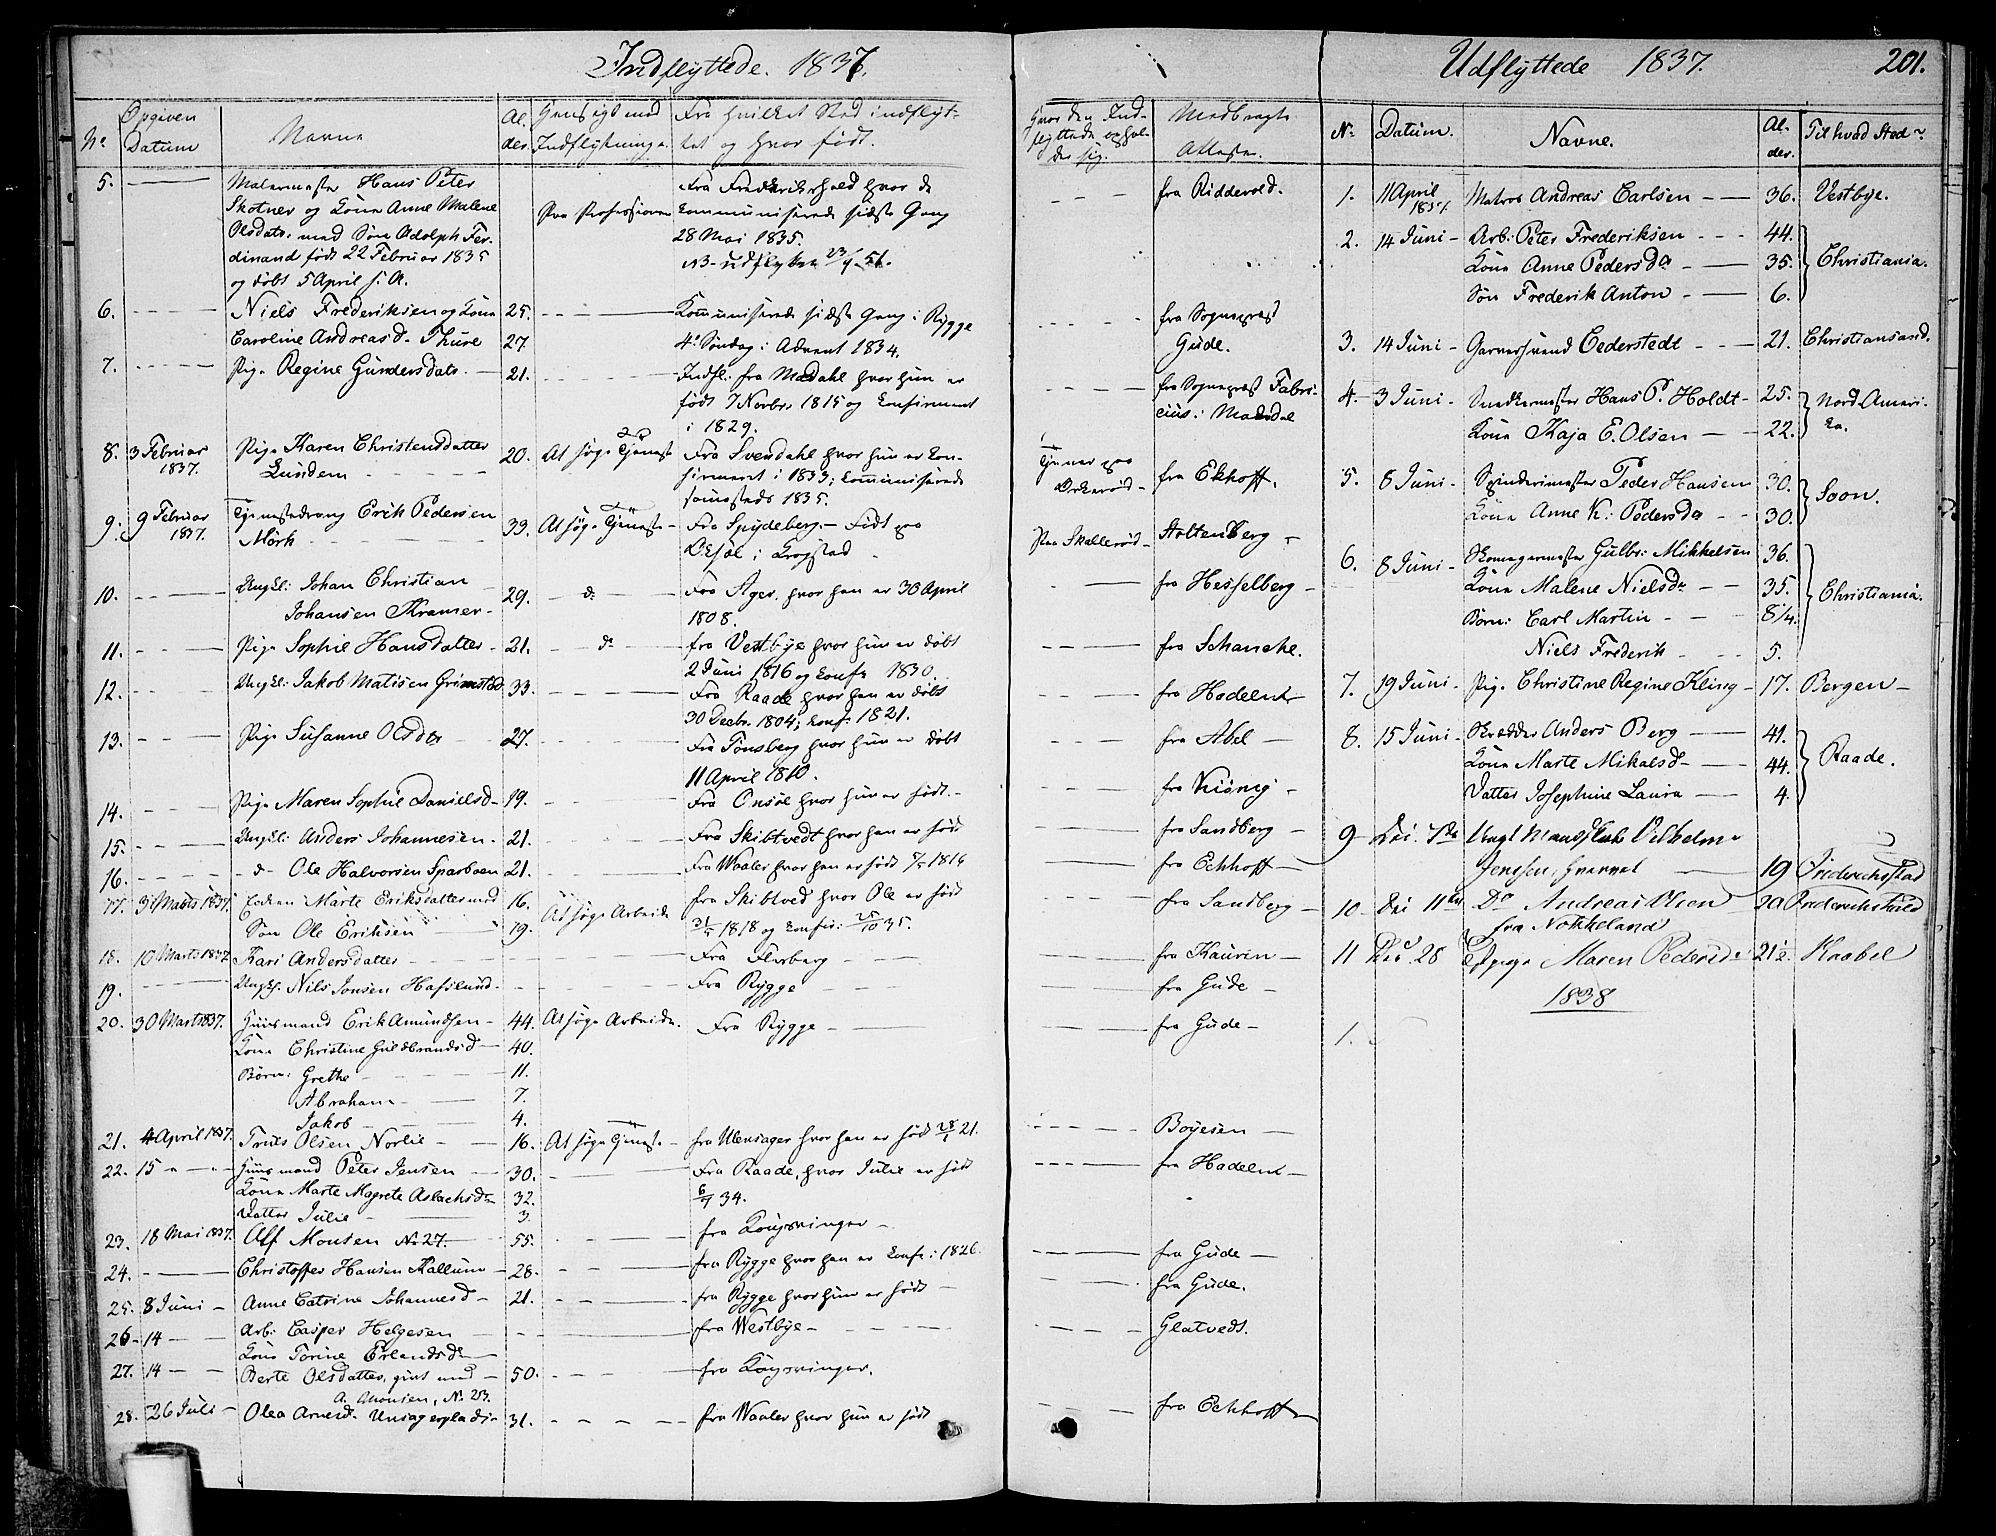 Indflyttede. 1837.
No
Opgiven Datum
Navne
Al. der.
Hensigt med Indflytningen
Fra hvilket Sted indflyt-
tet og hvor født.
Hvor den Ind-
flyttede ophol-
der sig.
Medbragt
Attester.
5. Malermester Hans Peter Fra Frederikshald hvor de fra Ridderold.
Skotner og Kone Anne Malene Paa Professionen kommunicerede sidste Gang
Olsdatr. med Søn Adolph Fer- 28 Mai 1835.
dinand født 22 Februar 1835 NB. udflyttet 23/9 51.
og døbt 5 April s. A.
6. Niels Frederiksen og Kone 25. Kommunicerede sidste Gang i Rygge fra Sognepræst
Caroline Andreasd. Thure 27. 4de Søndag i Advent 1834. Gude.
7. Pige Regine Gundersdatr. 21. Indfl. fra Mandahl hvor hun er fra Sognepræst Fabri-
født 7 Novbr. 1815 og konfirmeret cius i Mandal
i 1829.
8. 3 Februar 1837. Pige Karen Christensdatter 20. At søge Tjeneste Fra Svendahl hvor hun er kon- Tjener paa
Lunden firmeret i 1833; kommunicerede Orkerød fra Ekhoff.
samesteds 1835.
9. 9 Februar 1837. Tjenestedreng Erik Pedersen 33. At søge Tjeneste Fra Spydeberg. Født paa Paa Skallerød Stoltenberg
Mörk i Krogstad
10. Ungkl: Johan Christian 29. do Fra Ager, hvor han er 30 April fra Hesselberg
Johansen Kramer 1808.
11. Pige Sophie Hansdatter 21. do fra Vestbye hvor hun er døbt fra Schanche.
2 Juni 1816 og konfr. 1830.
12. Ungkl: Jakob Matisen Grimstad 33. Fra Raade hvor han er døbt fra Hadelnt
30 Decbr. 1804; konf. 1821.
13. Pige Susanne Olsdtr 27. Fra Tønsberg hvor hun er døbt fra Abel
11 April 1810.
14. Pige Maren Sophie Danielsd. 19. Fra Onsøe hvor hun er født. fra Kiönig
15. Ungkl: Anders Johannesen 21. Fra Skibtvedt hvor han er født fra Sandberg
16. do Ole Halvorsen Sparboen 21. Fra Waaler hvor han er født 1816 fra Echhoff
17. 31 Marts 1837. Enken Marte Eriksdatter med 16. At søge Arbeide fra Skibtved hvor Ole er født fra Sandberg
Søn Ole Eriksen 19. 1818 og konfir: 25/10 35.
18. 10 Marts 1837 Kari Andersdatter Fra Flesberg fra Kaurin
19. Ungk. Nils Jonsen Hafslund Fra Rygge fra Gude
20. 30 Marts 1837. Huusmand Erik Amundsen 44. At søge Arbeide. Fra Rygge fra Gude
Kone Christine Guldbrandsd 40.
Børn: Grethe 11.
Abraham 7.
Jakob 4.
21. 4 April 1837. Truls Olsen Norlie 16. At søge Tjeneste fra Ullensager hvor han er født 21. Boyesen
22. 15 Huusmand Peter Jensen 30. Fra Raade, hvor Julie er født fra Hadelnt
Kone Marte Magrete Aslachsdr 32. 34.
Datter Julie 3.
23. 18 Mai 1837. Alf Monsen No 27. 55. fra Kongsvinger
24. Christoffer Hansen Kallum 28. fra Rygge hvor han er konfr: 1826. fra Gude
25. 8 Juni Anne Catrine Johannesd 21. fra Rygge hvor hun er født fra Gude.
26. 14 Arb: Casper Helgesen fra Westbye Glatvedt.
Kone Torine Erlandsdr
27. 14 Berte Olsdatter, gift med 50. fra Kongsvinger.
A. Monsen, No. 23.
28. 26 Juli Olea Arnesd. Unsagerpladsen 31. fra Waaler hvor hun er født fra Echhoff
Udflyttede 1837. 201.
No Datum. Navne. Al- der. Til hvad Sted
1. 11 April 1837 Matros Andreas Carlsen 36. Vestbye.
2. 14 Juni Arb: Peter Frederiksen 44.
Kone Anne Pedersdr 35. Christiania.
Søn Frederik Anton 6.
3. 14 Juni Garversvend Cederstedt 21. Christiansand.
4. 3 Juni Snedkermester Hans P. Holdt 25. Nord Ameri-
Kone Kaja E. Olsen 22. ka.
5. 8 Juni Spinderimester Peder Hansen 30. Soon.
Kone Anne K: Pedersdr 30.
6. 8 Juni Skomagermester Gulbr: Mikkelsen 36.
Kone Malene Nielsdr 35. Christiania.
Børn: Carl Martin 8 1/4.
Niels Frederik 5.
7. 19 Juni Pige Christine Regine Kling 17. Bergen
8. 15 Juni Skrædder Anders Berg 41.
Kone Marte Mikalsd 44. Raade.
Datter Josephine Laura 4.
9 Dec. 7de Ungt Mandskab Vilhelm
Jenssen, 19 Friderichstad
10 Dec 11te Do Andreas Olsen 20 Friderichshald
fra Nokkeland
11 Dec. 28 Pige Maren Pedersd 21 1/2 Kraabel
1838
1.